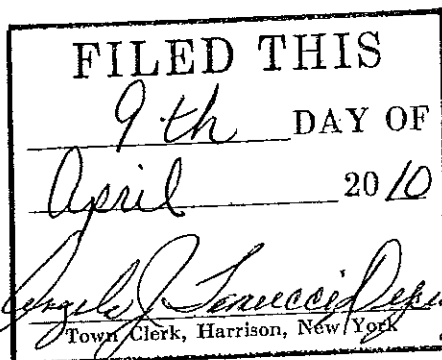 FILED THIS
9th DAY OF
April 2010
Town Clerk, Harrison, New York